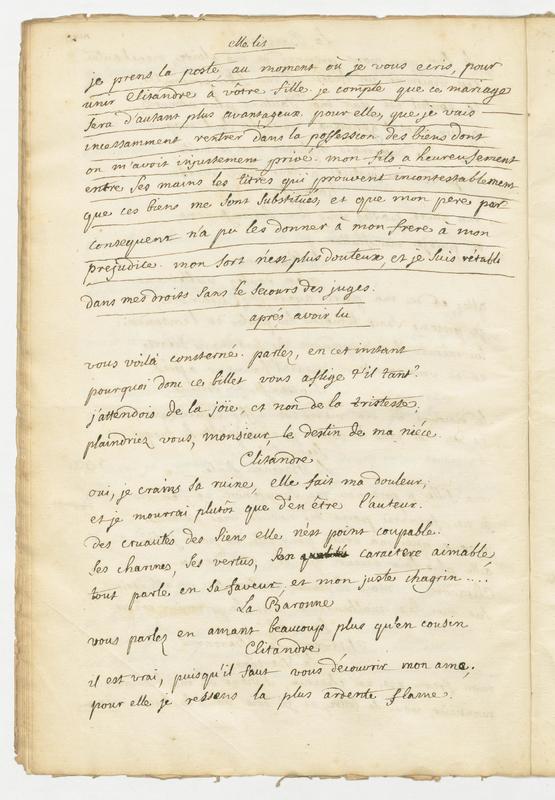 elle lit
je prens la poste au moment où je vous ecris, pour
unir Clitandre à vôtre fille. je compte que ce mariage
sera d'autant plus avantageux pour elle, que je vais
incessamment rentrer dans la possession des biens dont
on m'avoit injustement privé. mon fils a heureusement
entre ses mains les titres qui prouvent incontestablement
que ces biens me sont substitués, et que mon pere par
consequent n'a pu les donner à mon frere à mon
prejudice. mon sort n'est plus douteux, et je suis rétabli
dans mes droits sans le secours des juges.
aprés avoir lu
vous voilà consterné. parlez, en cet instant
pourquoi donc ce billet vous aflige t'il tant?
j'attendois de la joïe, et non de la tristesse,
plaindriez vous, monsieur, le destin de ma niéce.
Clitandre
oui, je crains sa ruine, elle fait ma douleur,
et je mourrai plutôt que d'en être l'auteur.
des cruautés des siens elle n'est point coupable.
ses charmes, ses vertus, son caractere aimable,
tout parle en sa faveur, et mon juste chagrin....
La Baronne
vous parlez en amant beaucoup plus qu'en cousin
Clitandre
il est vrai, puisqu'il faut vous découvrir mon ame,
pour elle je ressens la plus ardente flame.